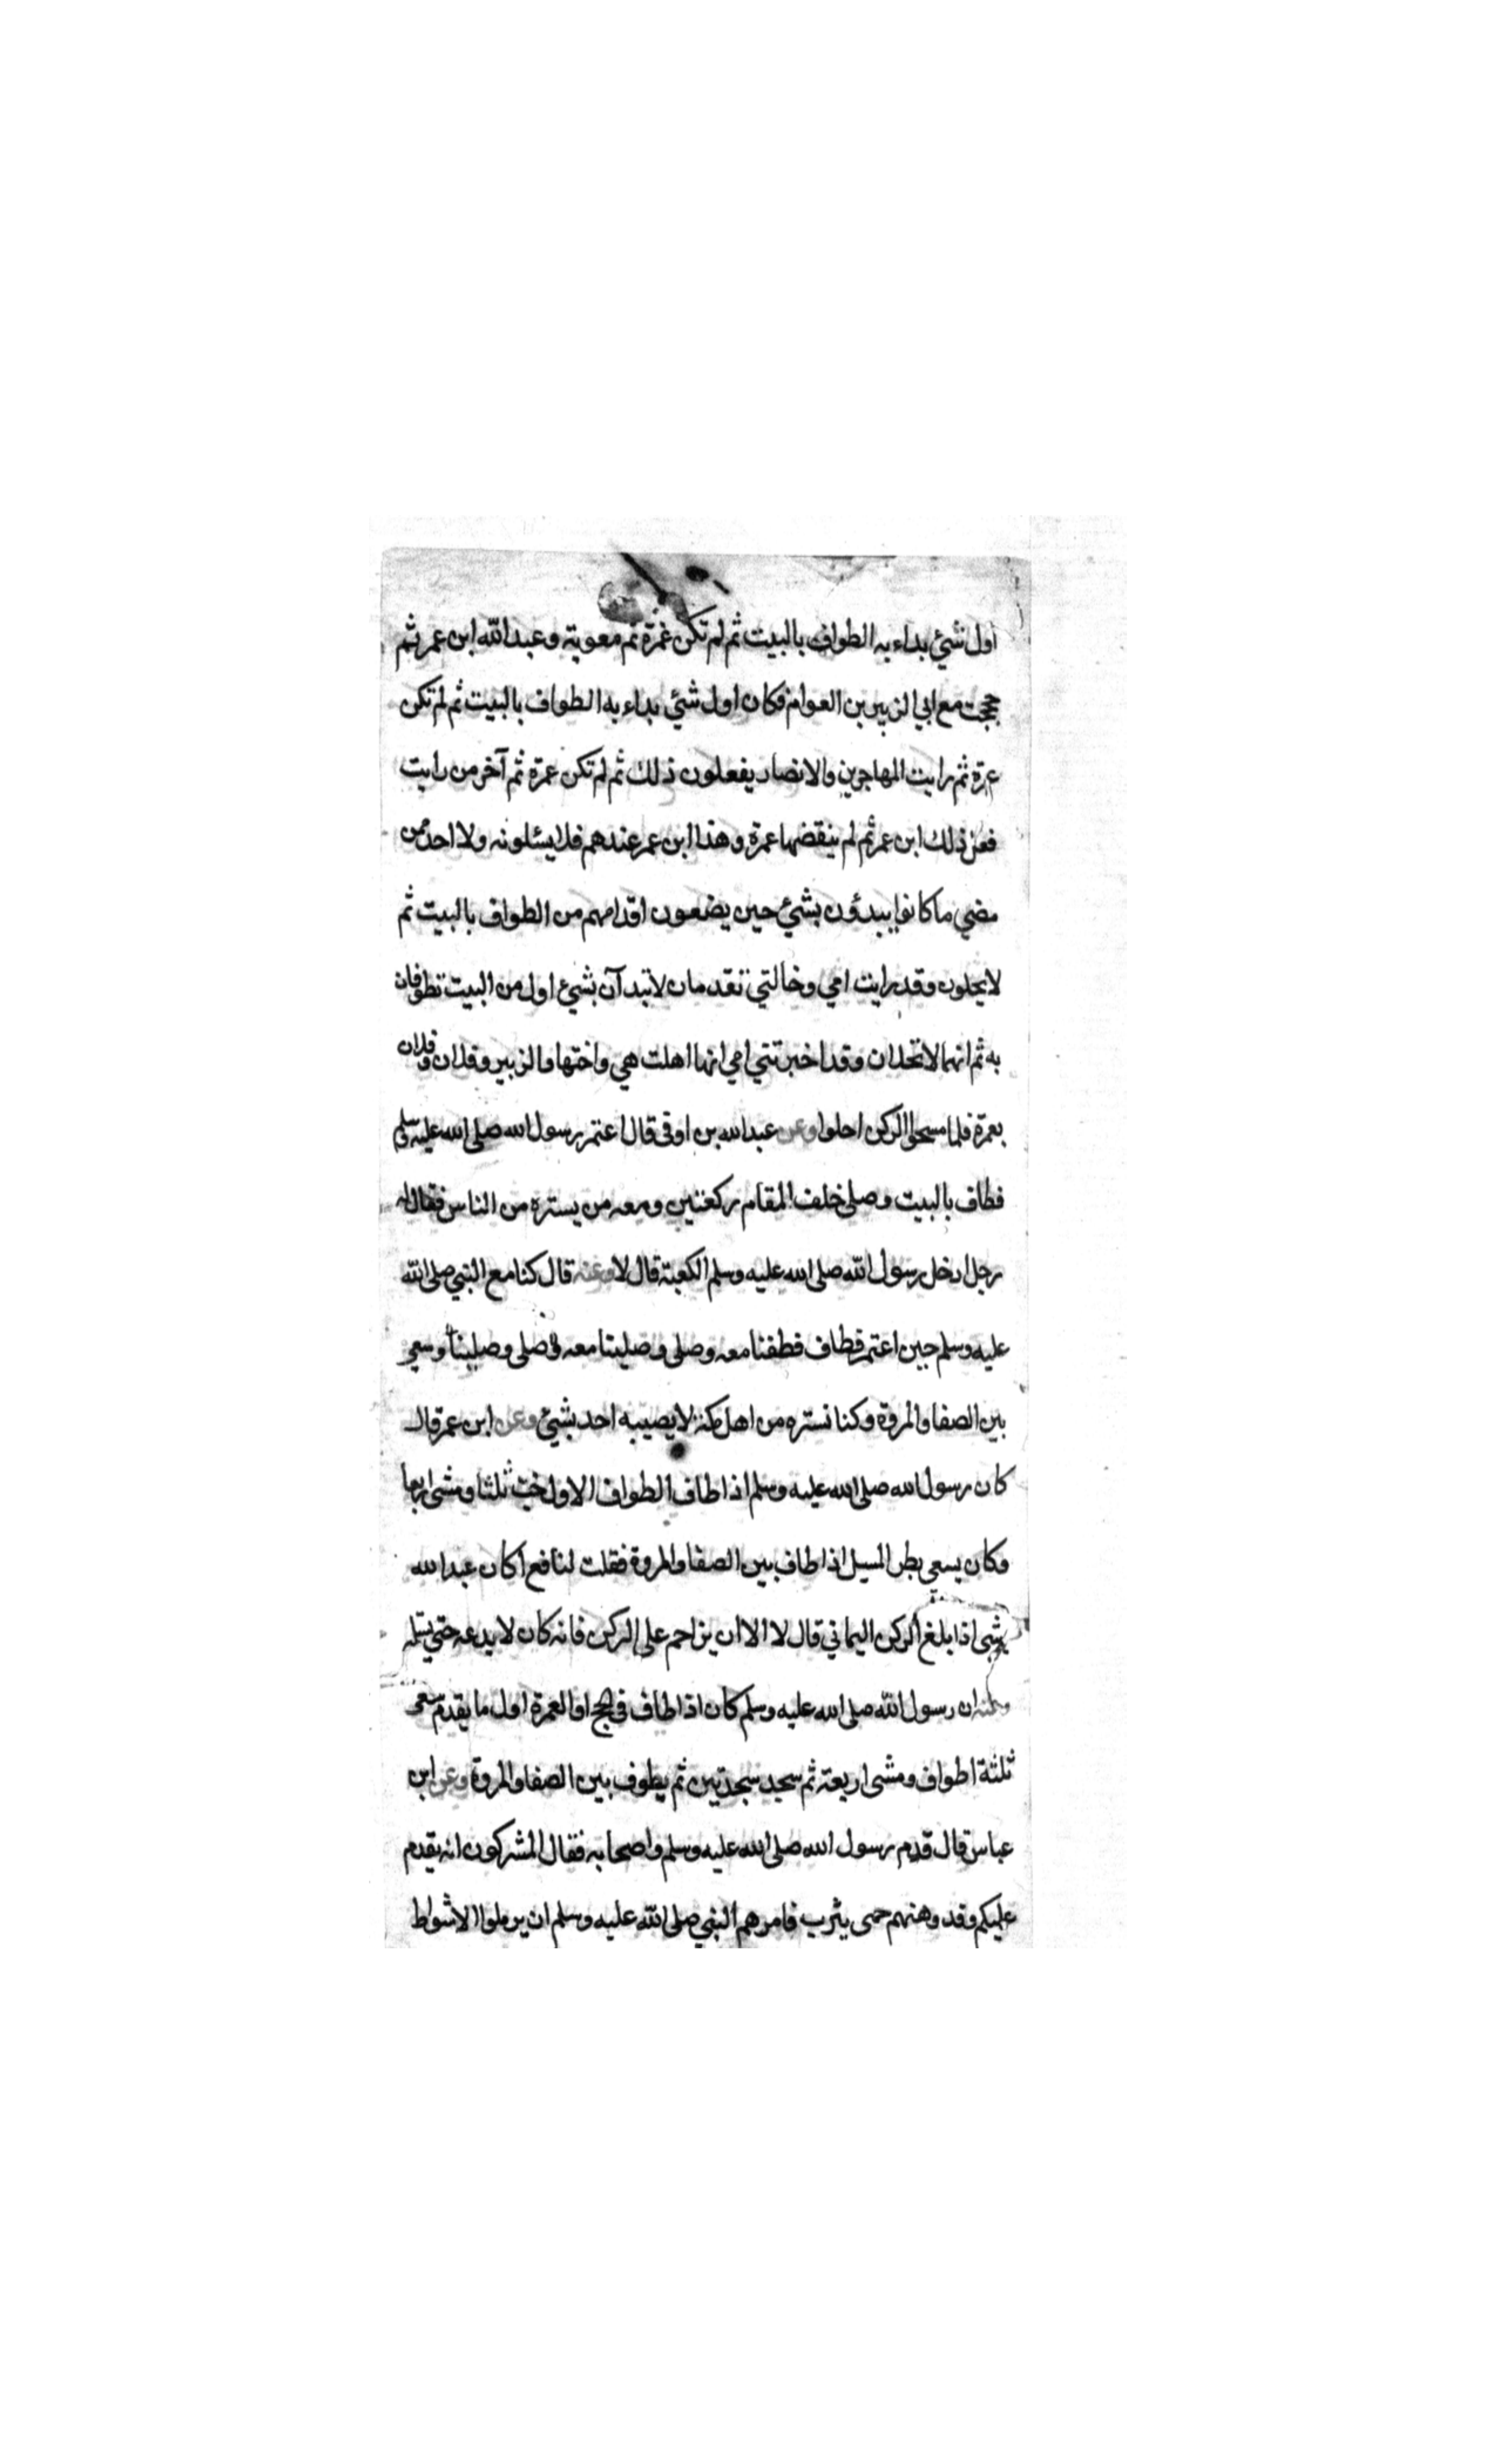 اول شيئ بداء به الطواف بالبيت ثم لم تكن عمرة ثم معوية وعبد الله ابن عمر ثم
حججت مع ابي الزبير بن العوام فكان اول شيئ بداء به الطواف بالبيت ثم لم تكن
عمرة ثم رايت المهاجرين والانصار يفعلون ذلك ثم لم تكن عمرة ثم آخر من رايت
فعل ذلك ابن عمر ثم لم ينقضها عمرة وهذا ابن عمر عندهم فلا يسئلونه ولا احد ممن
مضي ما كانوا يبدؤن بشيئ حين يضعون اقدامهم من الطواف بالبيت ثم
لا يحلون وقد رايت امي وخالتي تقدمان لا تبدآن بشيئ اول من البيت تطوفان
به ثم انهما لا تحلان وقد اخبرتني امي انها اهلت هي واختها والزبير وفلان وفلان
بعمرة فلما مسحوا الركن احلوا وعن عبد الله بن اوفى قال اعتمر رسول الله صلى الله عليه وسلم
فطاف بالبيت وصلى خلف المقام ركعتين ومعه من يستره من الناس فقال له
رجل ادخل رسول الله صلى الله عليه وسلم الكعبة قال لا وعنه قال كنا مع النبي صلى الله
عليه وسلم حين اعتمر فطاف فطفنا معه وصلى وصلينا معه وصلى وصلينا وسعى
بين الصفا والمروة وكنا نستره من اهل مكة لا يصيبه احد بشيئ وعن ابن عمر قال
كان رسول الله صلى الله عليه وسلم اذا طاف الطواف الاول خب ثلثا ومشى اربعا
وكان يسعي بطن المسيل اذا طاف بين الصفا والمروة فقلت لنافع أكان عبد الله
يمشى اذا بلغ الركن اليماني قال لا الا ان يزاحم على الركن فانه كان لا يدعه حتي يستلمه
وعنه ان رسول الله صلى الله عليه وسلم كان اذا طاف في الحج او العمرة اول ما يقدم سعى
ثلثة اطواف ومشى اربعة ثم سجد سجدتين ثم يطوف بين الصفا والمروة وعن ابن
عباس قال قدم رسول الله صلى الله عليه وسلم واصحابه فقال المشركون انه يقدم
عليكم وقد وهنهم حمى يثرب فامرهم النبي صلى الله عليه وسلم ان يرملوا الاشواط